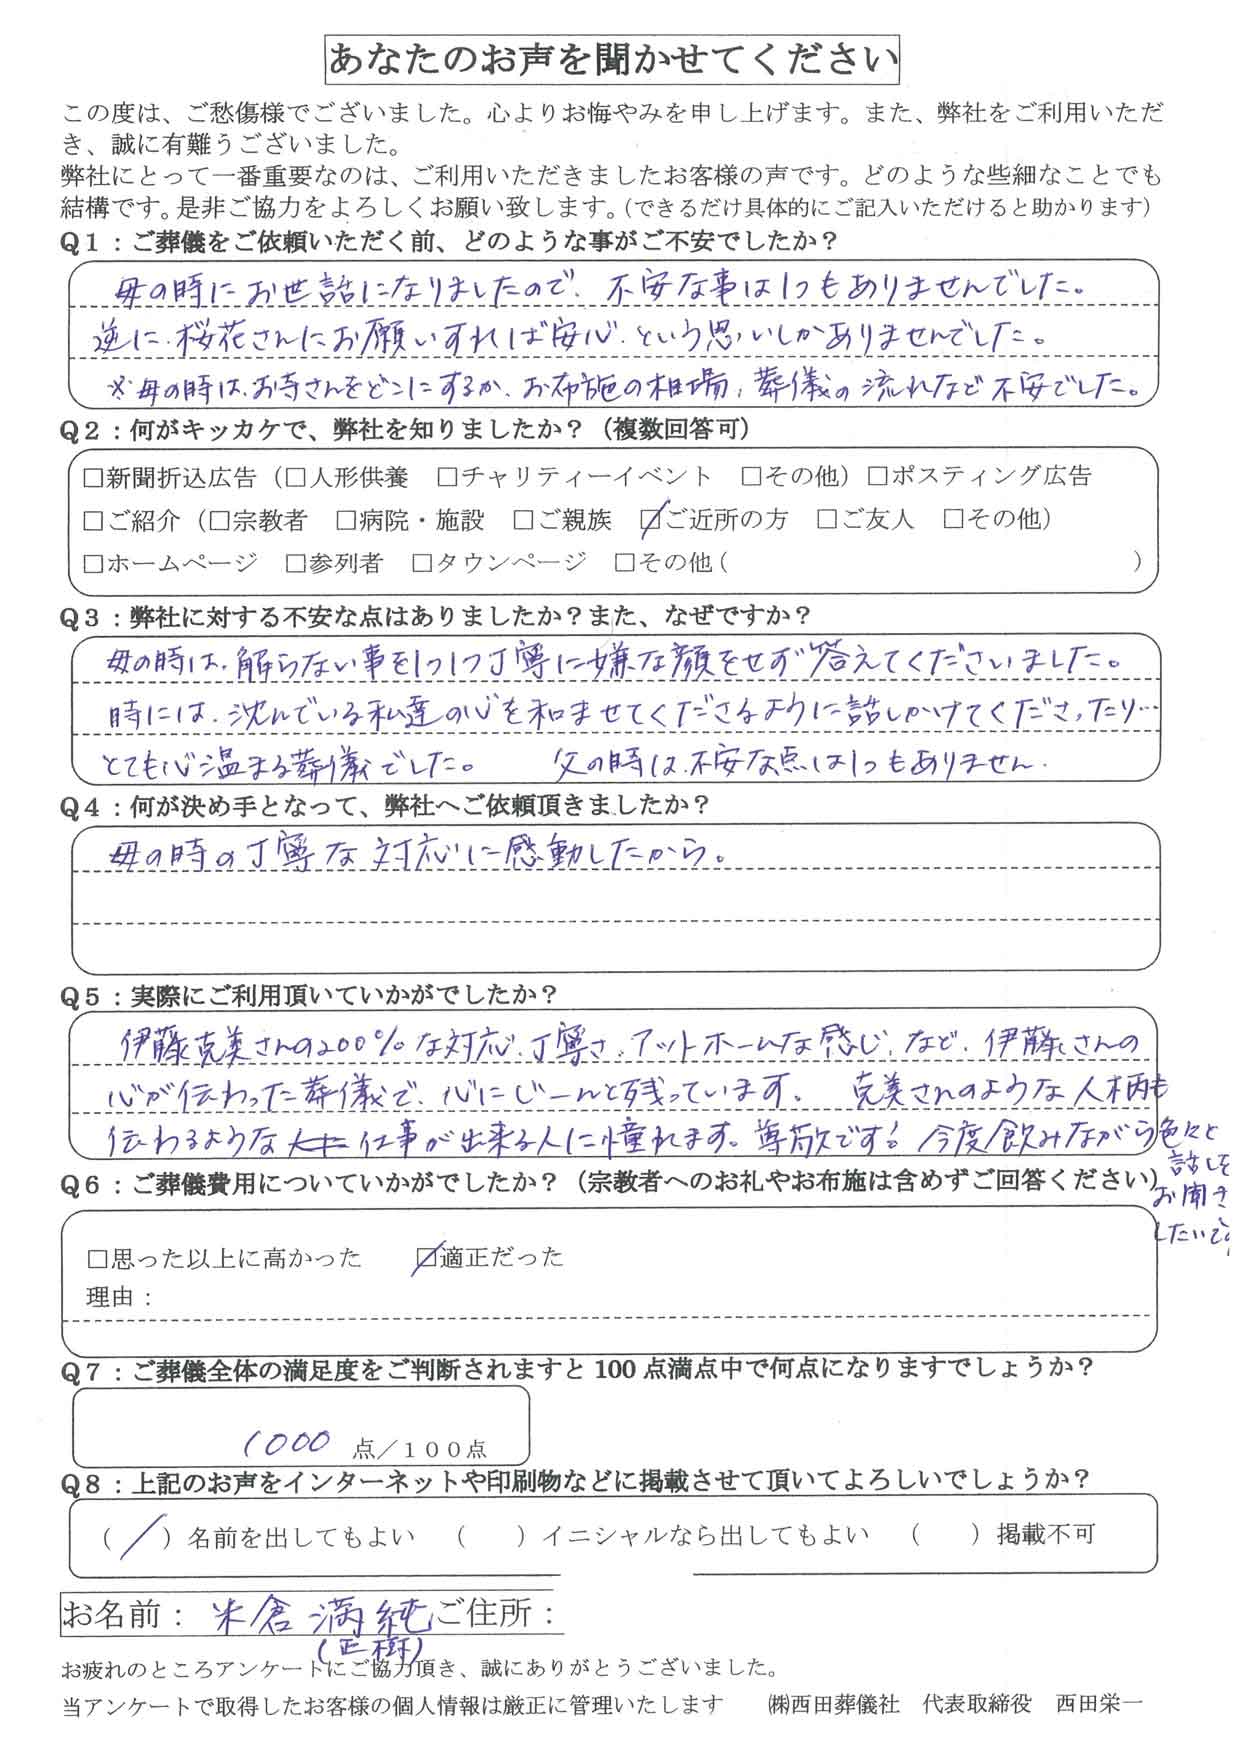 あなたのお声を聞かせてください
この度は、ご愁傷様でございました。心よりお悔やみを申し上げます。また、弊社をご利用いただ
き、誠に有難うございました。
弊社にとって一番重要なのは、ご利用いただきましたお客様の声です。どのような些細なことでも
結構です。是非ご協力をよろしくお願い致します。（できるだけ具体的にご記入いただけると助かります）
Q1：ご葬儀をご依頼いただく前、どのような事がご不安でしたか？
母の時にお世話になりましたので、不安な事は1つもありませんでした。
逆に、桜花さんにお願いすれば安心、という思いしかありませんでした。
※母の時は、お寺さんをどこにするか、お布施の相場、葬儀の流れなど不安でした。
Q2：何がキッカケで、弊社を知りましたか？（複数回答可）
□新聞折込広告（□人形供養　□チャリティーイベント　□その他）□ポスティング広告
□ご紹介（□宗教者　□病院・施設　□ご親族　☑ご近所の方　□ご友人　□その他）
□ホームページ　□参列者　□タウンページ　□その他（　　　　　　　　　　　　　　　　）
Q3：弊社に対する不安な点はありましたか？また、なぜですか？
母の時は、解らない事を1つ1つ丁寧に嫌な顔をせず答えてくださいました。
時には、沈んでいる私達の心を和ませてくださるように話しかけてくださったり…
とても心温まる葬儀でした。　父の時は、不安な点は1つもありません。
Q4：何が決め手となって、弊社へご依頼頂きましたか？
母の時の丁寧な対応に感動したから。
Q5：実際にご利用頂いていかがでしたか？
伊藤克美さんの200%な対応、丁寧さ、アットホームな感じ、など、伊藤さんの
心が伝わった葬儀で、心にじーんと残っています。　克美さんのような人柄も
伝わるような仕事が出来る人に憧れます。尊敬です！今度飲みながら色々と
話しを
お聞き
したいで
Q6：ご葬儀費用についていかがでしたか？（宗教者へのお礼やお布施は含めずご回答ください）
□思った以上に高かった　☑適正だった
理由：
Q7：ご葬儀全体の満足度をご判断されますと100点満点中で何点になりますでしょうか？
1000 点／100点
Q8：上記のお声をインターネットや印刷物などに掲載させて頂いてよろしいでしょうか？
（／）名前を出してもよい　（　　）イニシャルなら出してもよい　（　　）掲載不可
お名前：米倉 満純 ご住所：
(正樹)
お疲れのところアンケートにご協力頂き、誠にありがとうございました。
当アンケートで取得したお客様の個人情報は厳正に管理いたします　㈱西田葬儀社　代表取締役　西田栄一